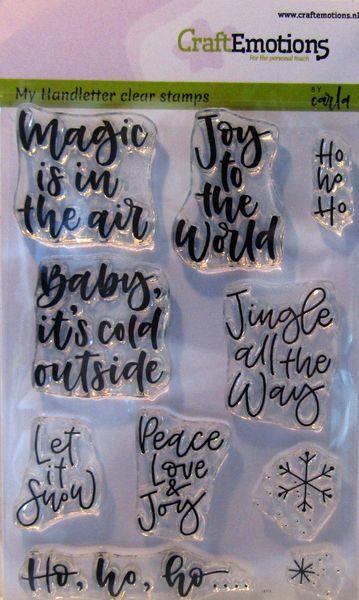 www.craftemotions.nl
CraftEmotions
For the personal touch
My Handletter clear stamps
BY
carla
Magic
is in
the air
Joy
to
the
World
Ho
ho
Ho
Baby,
it's cold
outside
Jingle
all the
Way
Let
it
Snow
Peace
Love
&
Joy
Ho, ho, ho....